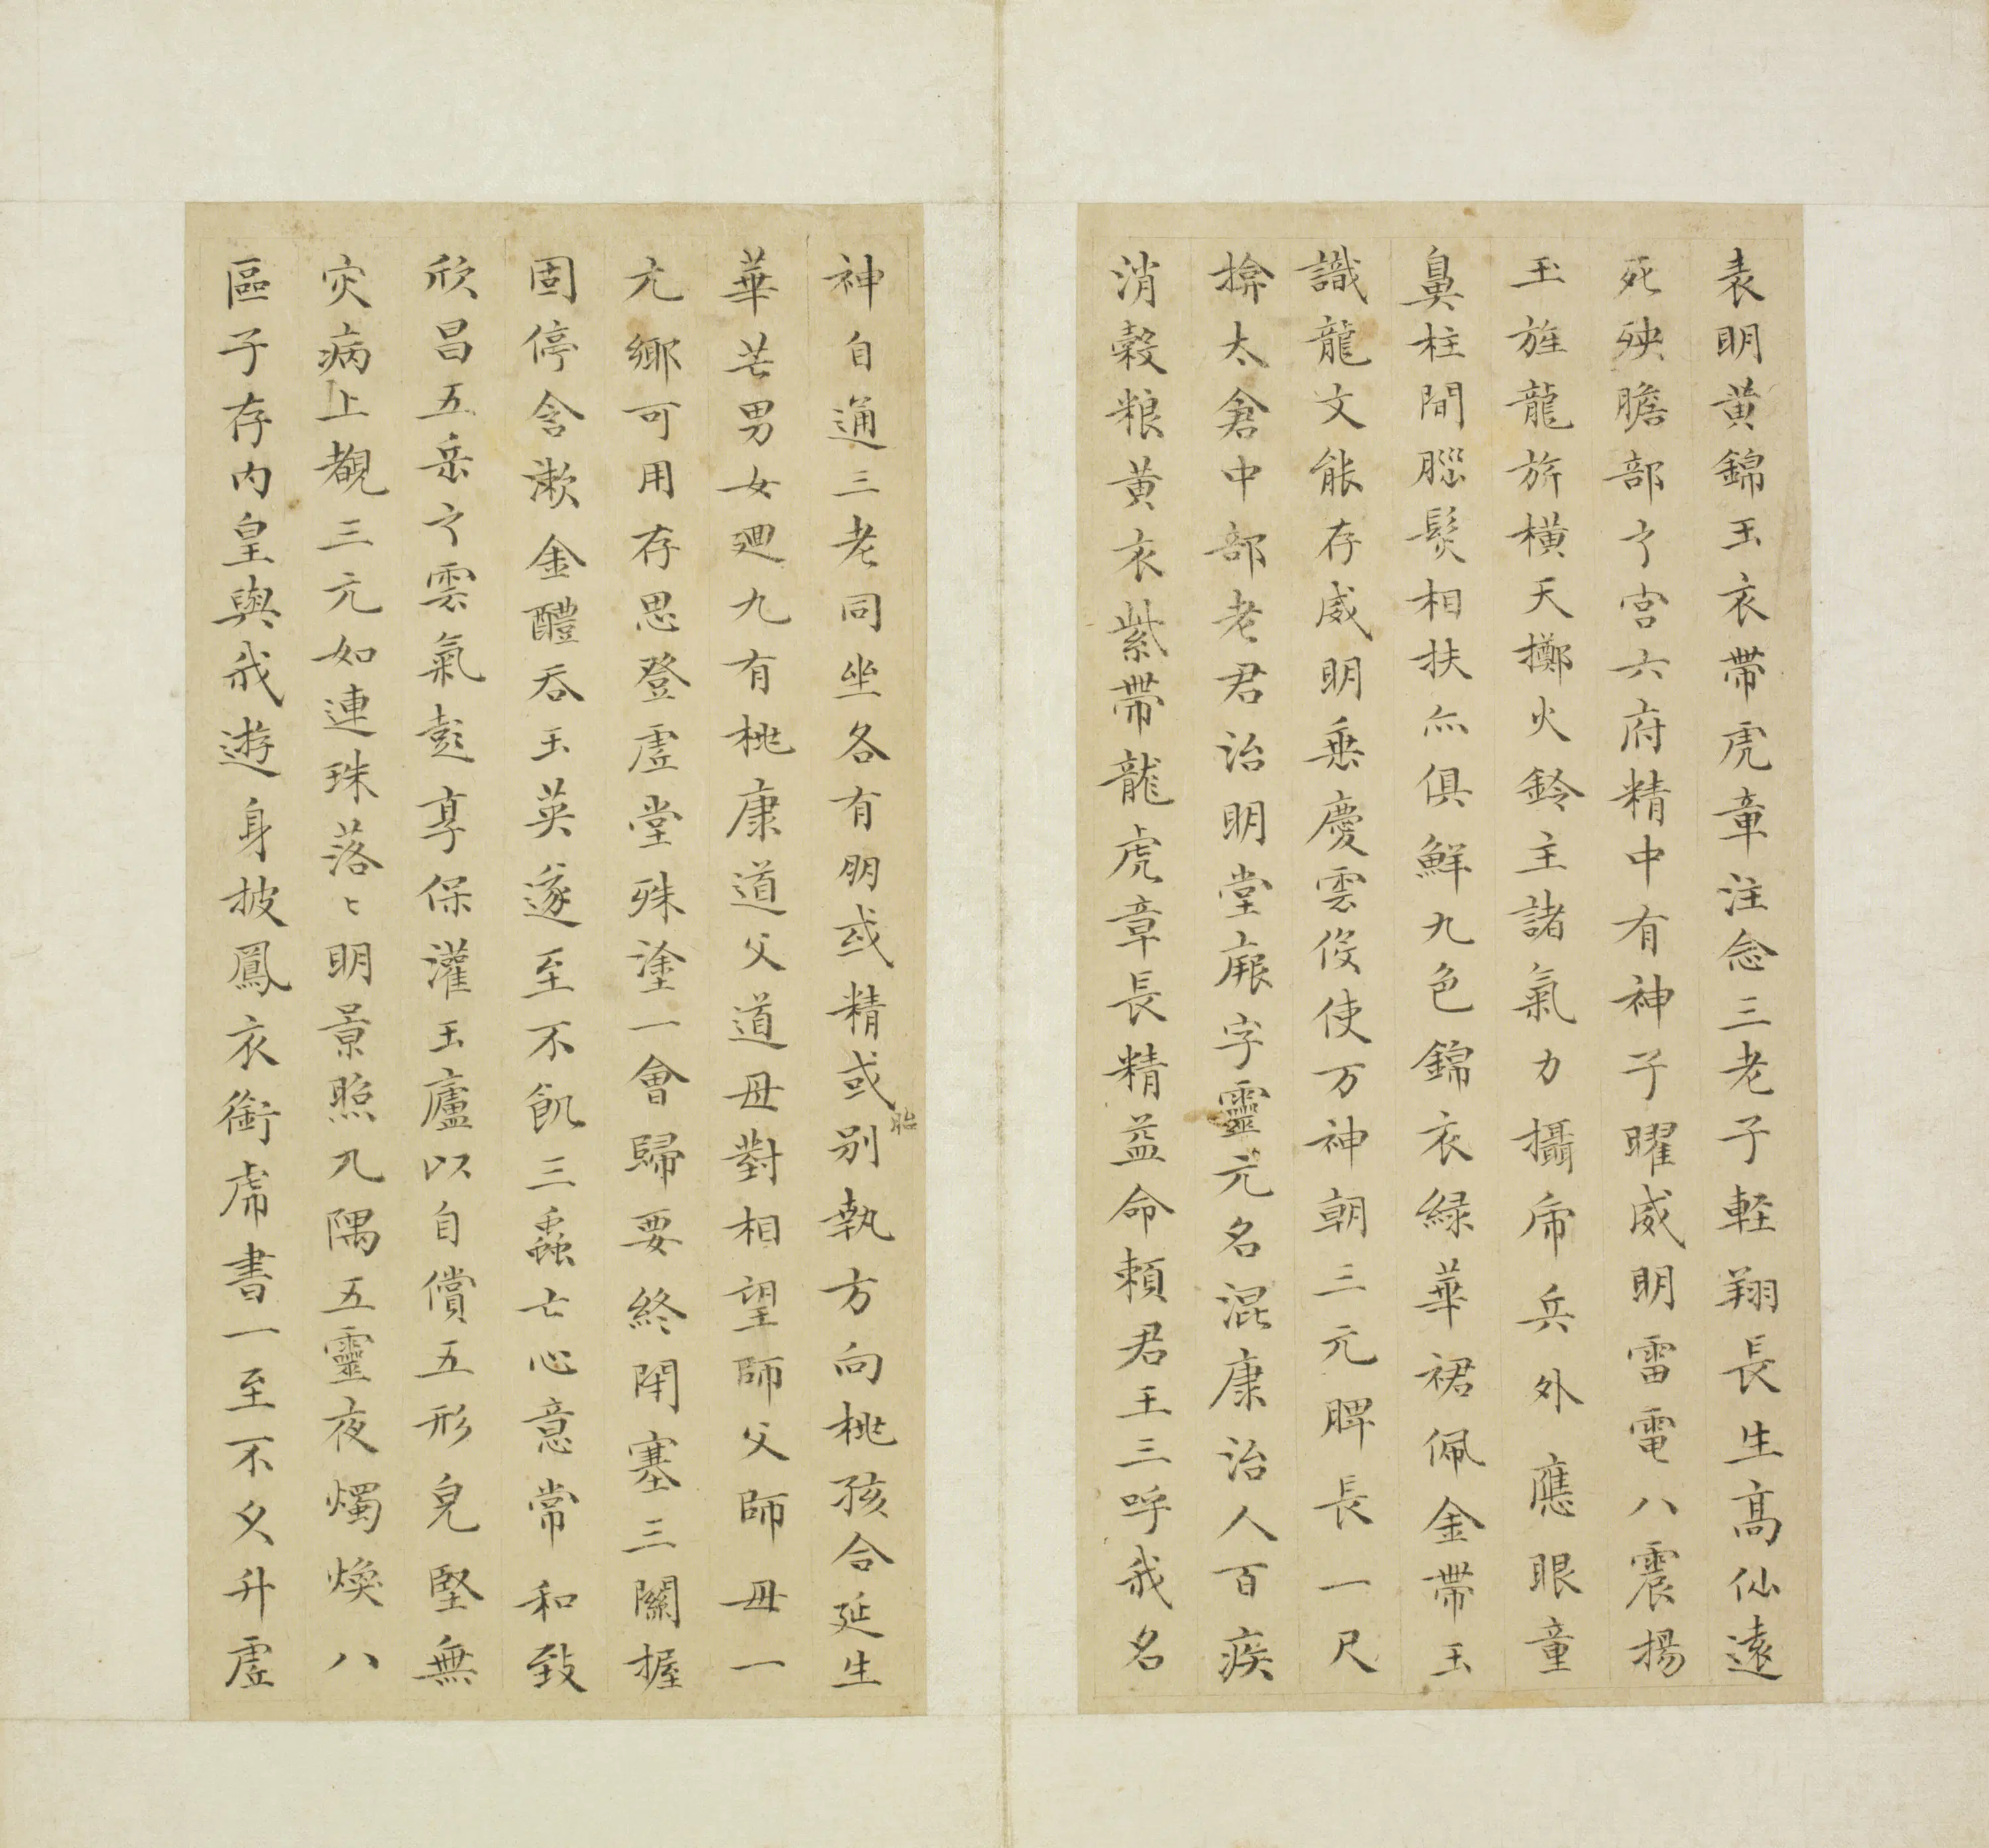 表明黄錦玉衣帶虎章注念三老子輕翔長生髙仙遠
死殃膽部之宫六府精中有神子曜威明雷電八震揚
玉旌龍旂橫天擲火鈴主諸氣力攝虎兵外應眼童
鼻柱間腦髮相扶亦俱鮮九色錦衣緑華裙佩金帶玉
識龍文能存威明乗慶雲役使万神朝三元脾長一尺
揜太倉中部老君治明堂厥字靈元名混康治人百疾
消穀粮黄衣紫帶龍虎章長精益命頼君王三呼我名
神自通三老同坐各有朋或精或胎别執方向桃孩合延生
華芒男女廻九有桃康道父道母對相望師父師母一
元鄉可用存思登虛堂殊塗一會歸要終閉塞三關握
固停含漱金醴吞玉英遂至不飢三蟲亡心意常和致
欣昌五岳之雲氣彭亨保灌玉廬以自償五形皃堅無
灾病上覩三元如連珠落〻明景照九隅五靈夜燭煥八
區子存内皇與我遊身披鳳衣銜虎書一至不久升虛